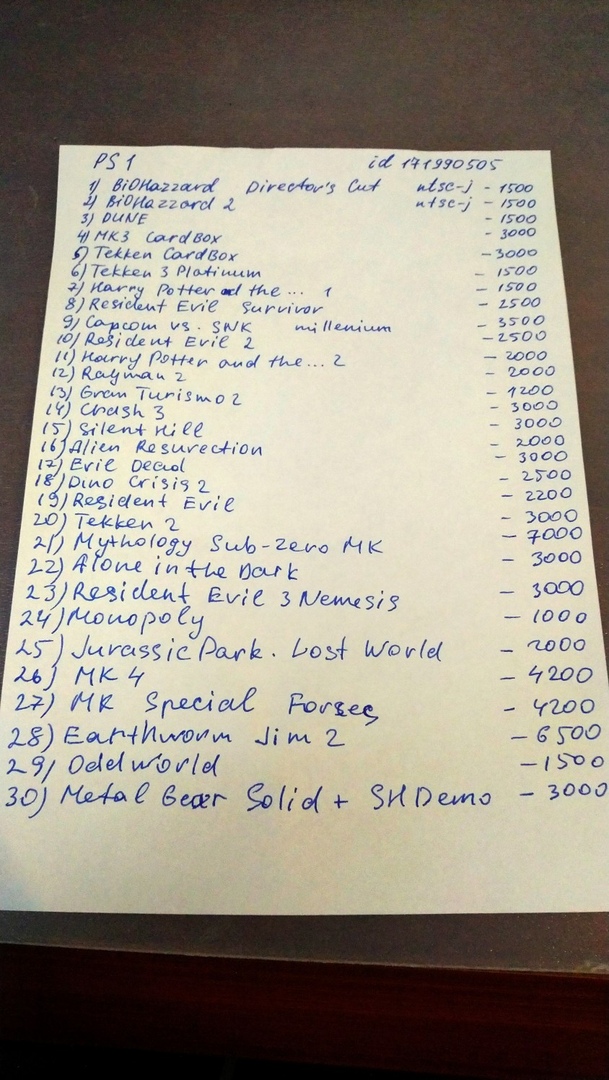 PS1 id 171990505
1) BiOHazzard Director's Cut ntsc-j - 1500
2) BiOHazzard 2 ntsc-j - 1500
3) DUNE - 1500
4) MK3 CardBox - 3000
5) Tekken CardBox - 3000
6) Tekken 3 Platinum - 1500
7) Harry Potter and the ... 1 - 1500
8) Resident Evil Survivor - 2500
9) Capcom vs. SNK millenium - 3500
10) Resident Evil 2 - 2500
11) Harry Potter and the... 2 - 2000
12) Rayman 2 - 2000
13) Gran Turismo 2 - 1200
14) Crash 3 - 3000
15) Silent Hill - 3000
16) Alien Resurection - 2000
17) Evil Dead - 3000
18) Dino Crisis 2 - 2500
19) Resident Evil - 2200
20) Tekken 2 - 3000
21) Mythology Sub-Zero MK - 7000
22) Alone in the Dark - 3000
23) Resident Evil 3 Nemesis - 3000
24) Monopoly - 1000
25) Jurassic Park. Lost World - 2000
26) MK 4 - 4200
27) MK Special Forses - 4200
28) Earthworm Jim 2 - 6500
29) Oddworld - 1500
30) Metal Gear Solid + SH Demo - 3000